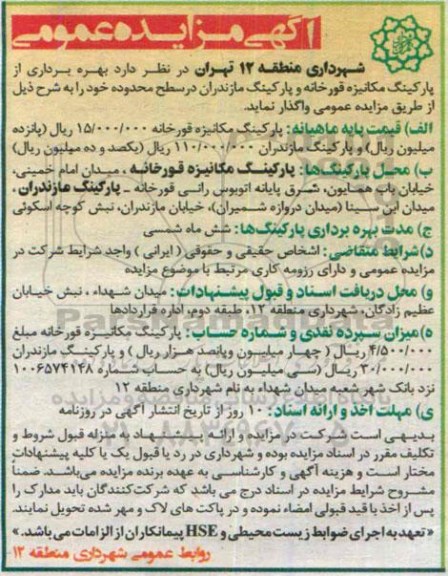 آگهی مزایده عمومی
شهرداری منطقه ۱۲ تهران در نظر دارد بهره برداری از
پارکینگ مکانیزه قورخانه و پارکینگ مازندران درسطح محدوده خود را به شرح ذیل
از طریق مزایده عمومی واگذار نماید.
الف) قیمت پایه ماهیانه: پارکینگ مکانیزه قورخانه ۱۵/۰۰۰/۰۰۰ ریال (پانزده
میلیون ریال) و پارکینگ مازندران ۱۱۰/۰۰۰/۰۰۰ ریال (یکصد و ده میلیون ریال)
ب) محل پارکینگ‌ها: پارکینگ مکانیزه قورخانه، میدان امام خمینی،
خیابان باب همایون، شرق پایانه اتوبوس رانی قورخانه - پارکینگ مازندران،
میدان ابن سینا (میدان دروازه شمیران)، خیابان مازندران، نبش کوچه اسکوئی
ج) مدت بهره برداری پارکینگ‌ها: شش ماه شمسی
د) شرایط متقاضی: اشخاص حقیقی و حقوقی (ایرانی) واجد شرایط شرکت در
مزایده عمومی و دارای رزومه کاری مرتبط با موضوع مزایده
و) محل دریافت اسناد و قبول پیشنهادات: میدان شهداء، نبش خیابان
عظیم زادگان، شهرداری منطقه ۱۲، طبقه دوم، اداره قراردادها
ه) میزان سپرده نقدی و شماره حساب: پارکینگ مکانیزه قورخانه مبلغ
۴/۵۰۰/۰۰۰ ریال (چهار میلیون وپانصد هزار ریال) و پارکینگ مازندران
۳۰/۰۰۰/۰۰۰ ریال (سی میلیون ریال) به حساب شماره ۱۰۰۶۵۷۴۱۴۸
نزد بانک شهر شعبه میدان شهداء به نام شهرداری منطقه ۱۲
ی) مهلت اخذ و ارائه اسناد: ۱۰ روز از تاریخ انتشار آگهی در روزنامه
بدیهی است شرکت در مزایده و ارائه پیشنهاد به منزله قبول شروط و
تکلیف مقرر در اسناد مزایده بوده و شهرداری در رد یا قبول یک یا کلیه پیشنهادات
مختار است و هزینه آگهی و کارشناسی به عهده برنده مزایده می‌باشد. ضمنا
مشروح شرایط مزایده در اسناد درج می باشد که شرکت‌کنندگان باید مدارک را
پس از اخذ با قید قبولی امضاء نموده و در پاکت های لاک و مهر شده تحویل نمایند.
«تعهد به اجرای ضوابط زیست محیطی و HSE پیمانکاران از الزامات می‌باشد.»
روابط عمومی شهرداری منطقه ۱۲